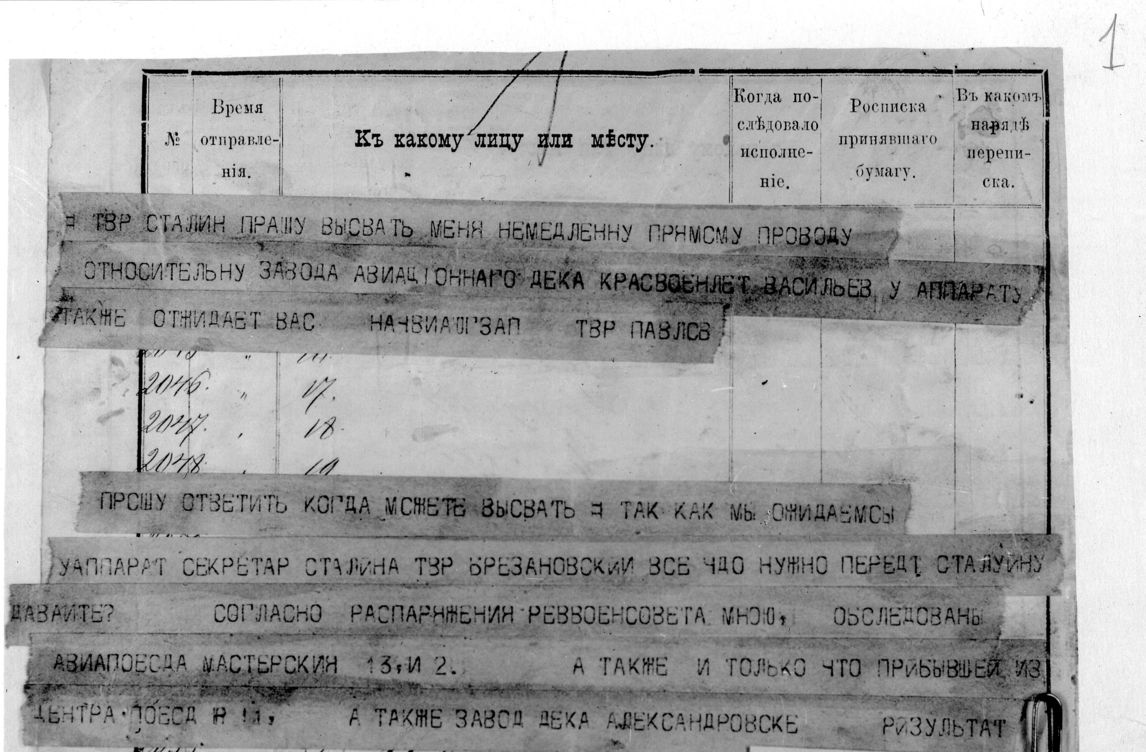 1
№
Время отправле-нія.
Къ какому лицу или мѣсту.
Когда по-слѣдовало исполне-ніе.
Росписка принявшаго бумагу.
Въ какомъ нарядѣ перепи-ска.
ТВР СТАЛИН ПРАШУ ВЫСВАТЬ МЕНЯ НЕМЕДЛЕННУ ПРЯМСМУ ПРОВОДУ
ОТНОСИТЕЛЬНУ ЗАВОДА АВИАЦIОННАГО ДЕКА КРАСВОЕНЛЕТ ВАСИЛЬЕВ У АППАРАТУ
ТАКЖЕ ОТЖИДАЕТ ВАС ТВР ПАВЛСВ
2046. " 17.
2047. " 18.
2048. " 19
ПРСШУ ОТВЕТИТЬ КОГДА МСЖЕТЕ ВЫСВАТЬ = ТАК КАК МЫ ОЖИДАЕМСЫ
УАППАРАТ СЕКРЕТАР СТАЛИНА ТВР БРЕЗАНОВСКИИ ВСЕ ЧДО НУЖНО ПЕРЕДТ СТАЛУИНУ
ДАВАИТЕ? СОГЛАСНО РАСПАРЯЖЕНИЯ РЕВВОЕНСОВЕТА МНОЮ, ОБСЛЕДОВАНЫ
АВИАПОЕСДА МАСТЕРСКИЯ 13,И 2. А ТАКЖЕ И ТОЛЬКО ЧТО ПРИБЫВШЕЙ ИЗ
ЦЕНТРА ПОЕСД N 11, А ТАКЖЕ ЗАВОД ДЕКА АЛЕКСАНДРОВСКЕ РИЗУЛЬТАТ